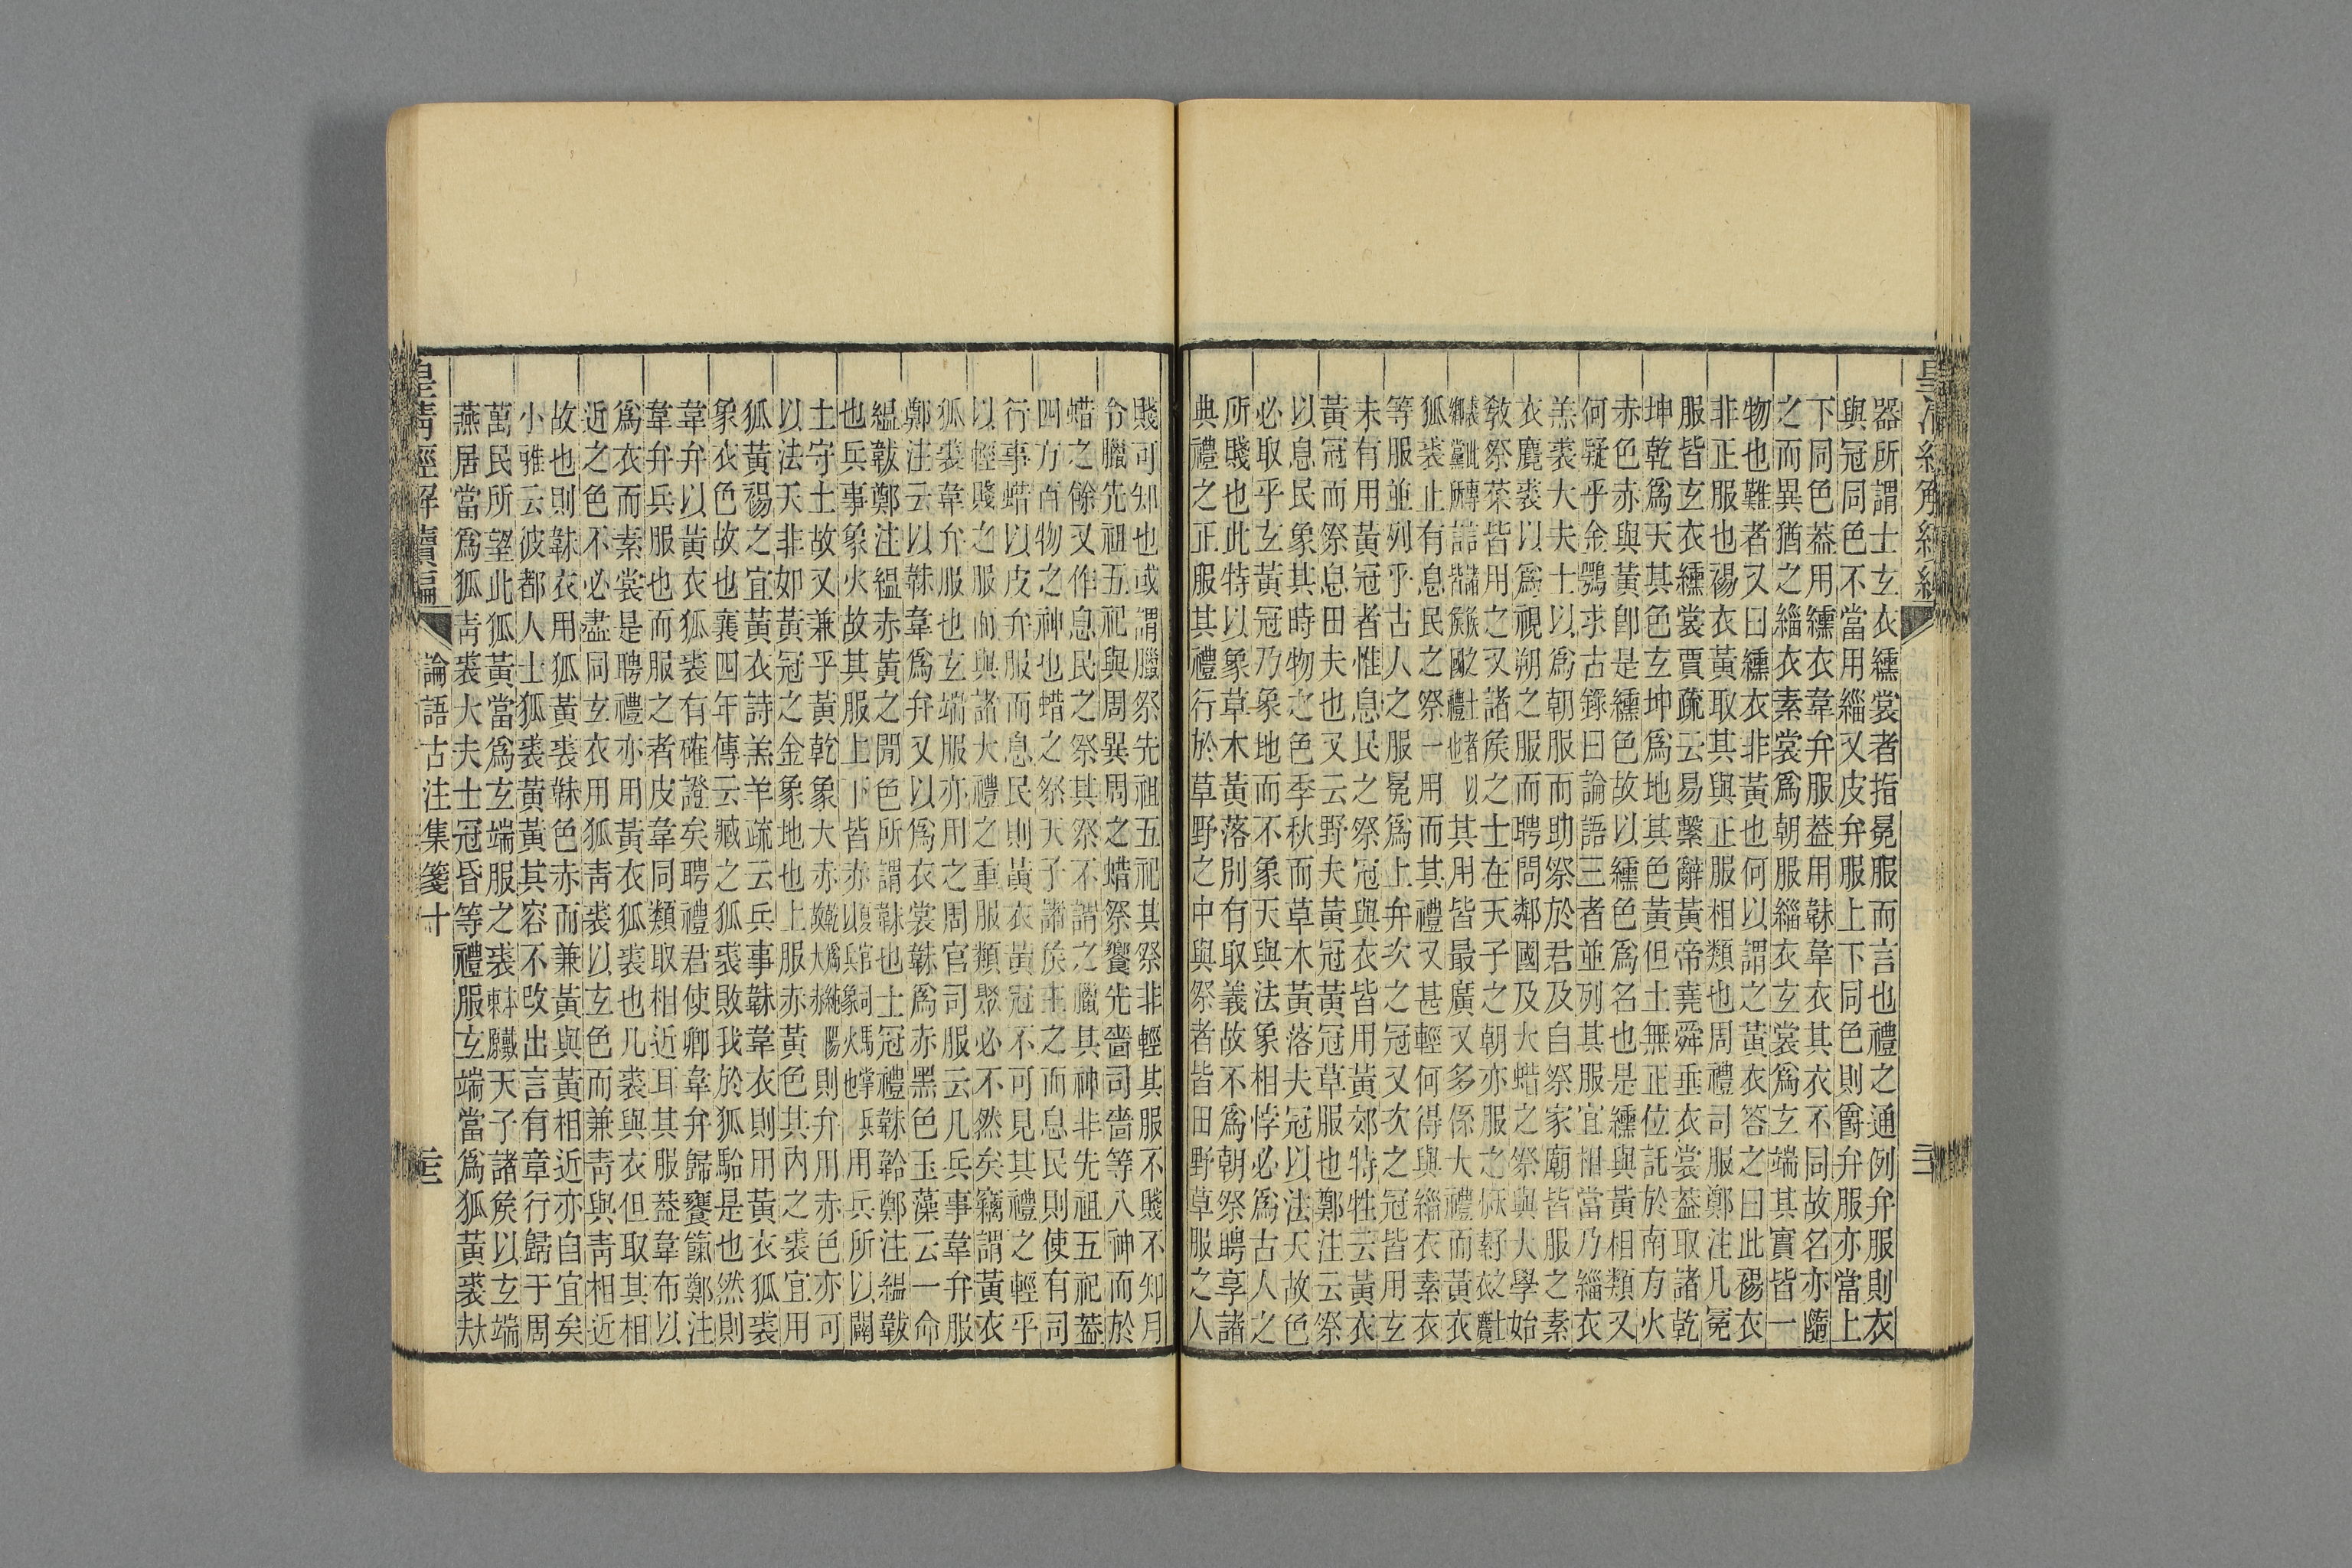 器所謂士玄衣纁裳者指冕服而言也禮之通例弁服則衣
與冠同色不當用緇又皮弁服上下同色則爵弁服亦當上
下同色葢用纁衣韋弁服葢用韎韋衣其衣不同故名亦隨
之而異猶之緇衣素裳爲朝服緇衣玄裳爲玄端其實皆一
物也難者又曰纁衣非黃也何以謂之黃衣答之曰此裼衣
非正服也裼衣黃取其與正服相類也周禮司服鄭注凡冕
服皆玄衣纁裳賈疏云易繫辭黃帝堯舜垂衣裳葢取諸乾
坤乾爲天其色玄坤爲地其色黃但土無正位託於南方火
赤色赤與黃卽是纁色故以纁色爲名也是纁與黃相類又
何疑乎金鶚求古錄曰論語三者並列其服宜相當乃緇衣
羔裘大夫士以爲朝服而助祭於君及自祭家廟皆服之素
衣麑裘以爲視朔之服而聘問鄰國及大蜡之祭與大學始
敎祭菜皆用之又諸矦之士在天子之朝亦服之
其用皆最廣又多係大禮而黃衣
狐裘止有息民之祭一用而其禮又甚輕何得與緇衣素衣
等服並列乎古人之服冕爲上弁次之冠又次之冠皆用玄
未有用黃冠者惟息民之祭冠與衣皆用黃郊特牲云黃衣
黃冠而祭息田夫也又云野夫黃冠黃冠草服也鄭注云祭
以息民象其時物之色季秋而草木黃落夫冠以法天故色
必取乎玄黃冠乃象地而不象天與法象相悖必爲古人之
所賤也此特以象草木黃落別有取義故不爲朝祭聘享諸
典禮之正服其禮行於草野之中與祭者皆田野草服之人
賤可知也或謂臘祭先祖五祀其祭非輕其服不賤不知月
令臘先祖五祀與周異周之蜡祭饗先嗇司嗇等八神而於
蜡之餘又作息民之祭其祭不謂之臘其神非先祖五祀葢
四方百物之神也蜡之祭天子諸矦主之而息民則使有司
行事蜡以皮弁服而息民則黃衣黃冠不可見其禮之輕乎
以輕賤之服而與諸大禮之重服類聚必不然矣竊謂黃衣
狐裘韋弁服也玄端服亦用之周官司服云凡兵事韋弁服
鄭注云以韎韋爲弁又以爲衣裳韎爲赤黑色玉藻云一命
縕韍鄭注縕赤黃之閒色所謂韎也士冠禮韎韐鄭注縕韍
也兵事象火故其服上下皆赤兵所以闢
土守土故又兼乎黃乾象大赤則弁用赤色亦可
以法天非如黃冠之金象地也上服赤黃色其內之裘宜用
狐黃裼之宜黃衣詩羔羊疏云兵事韎韋衣則用黃衣狐裘
象衣色故也襄四年傳云臧之狐裘敗我於狐駘是也然則
韋弁以黃衣狐裘有確證矣聘禮君使卿韋弁歸饔餼鄭注
韋弁兵服也而服之者皮韋同類取相近耳其服葢韋布以
爲衣而素裳是聘禮亦用黃衣狐裘也凡裘與衣但取其相
近之色不必盡同玄衣用狐青裘以玄色而兼青與青相近
故也則韎衣用狐黃裘韎色赤而兼黃與黃相近亦自宜矣
小雅云彼都人士狐裘黃黃其容不改出言有章行歸于周
萬民所望此狐黃當爲玄端服之裘天子諸矦以玄端
燕居當爲狐青裘大夫士冠昏等禮服玄端當爲狐黃裘
皇淸經解續編
論語古注集箋十